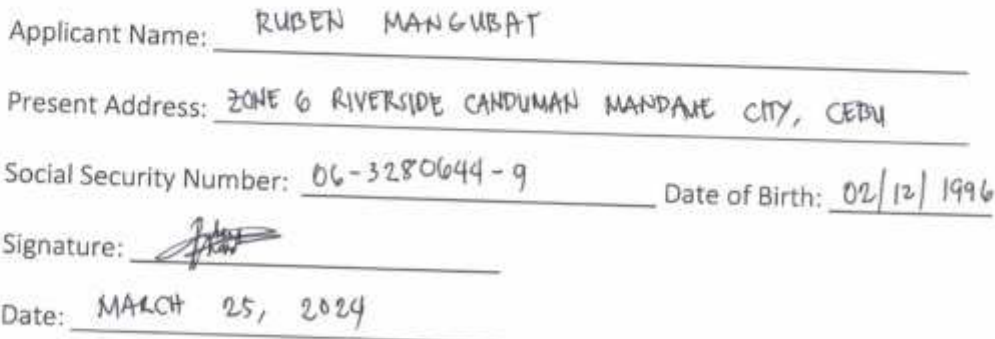 Applicant Name: RUBEN MANGUBAT
Present Address: ZONE 6 RIVERSIDE CANDUMAN MANDAUE CITY, CEBU
Social Security Number: 06-3280644-9 Date of Birth: 02/12/1996
Signature:
Date: MARCH 25, 2024